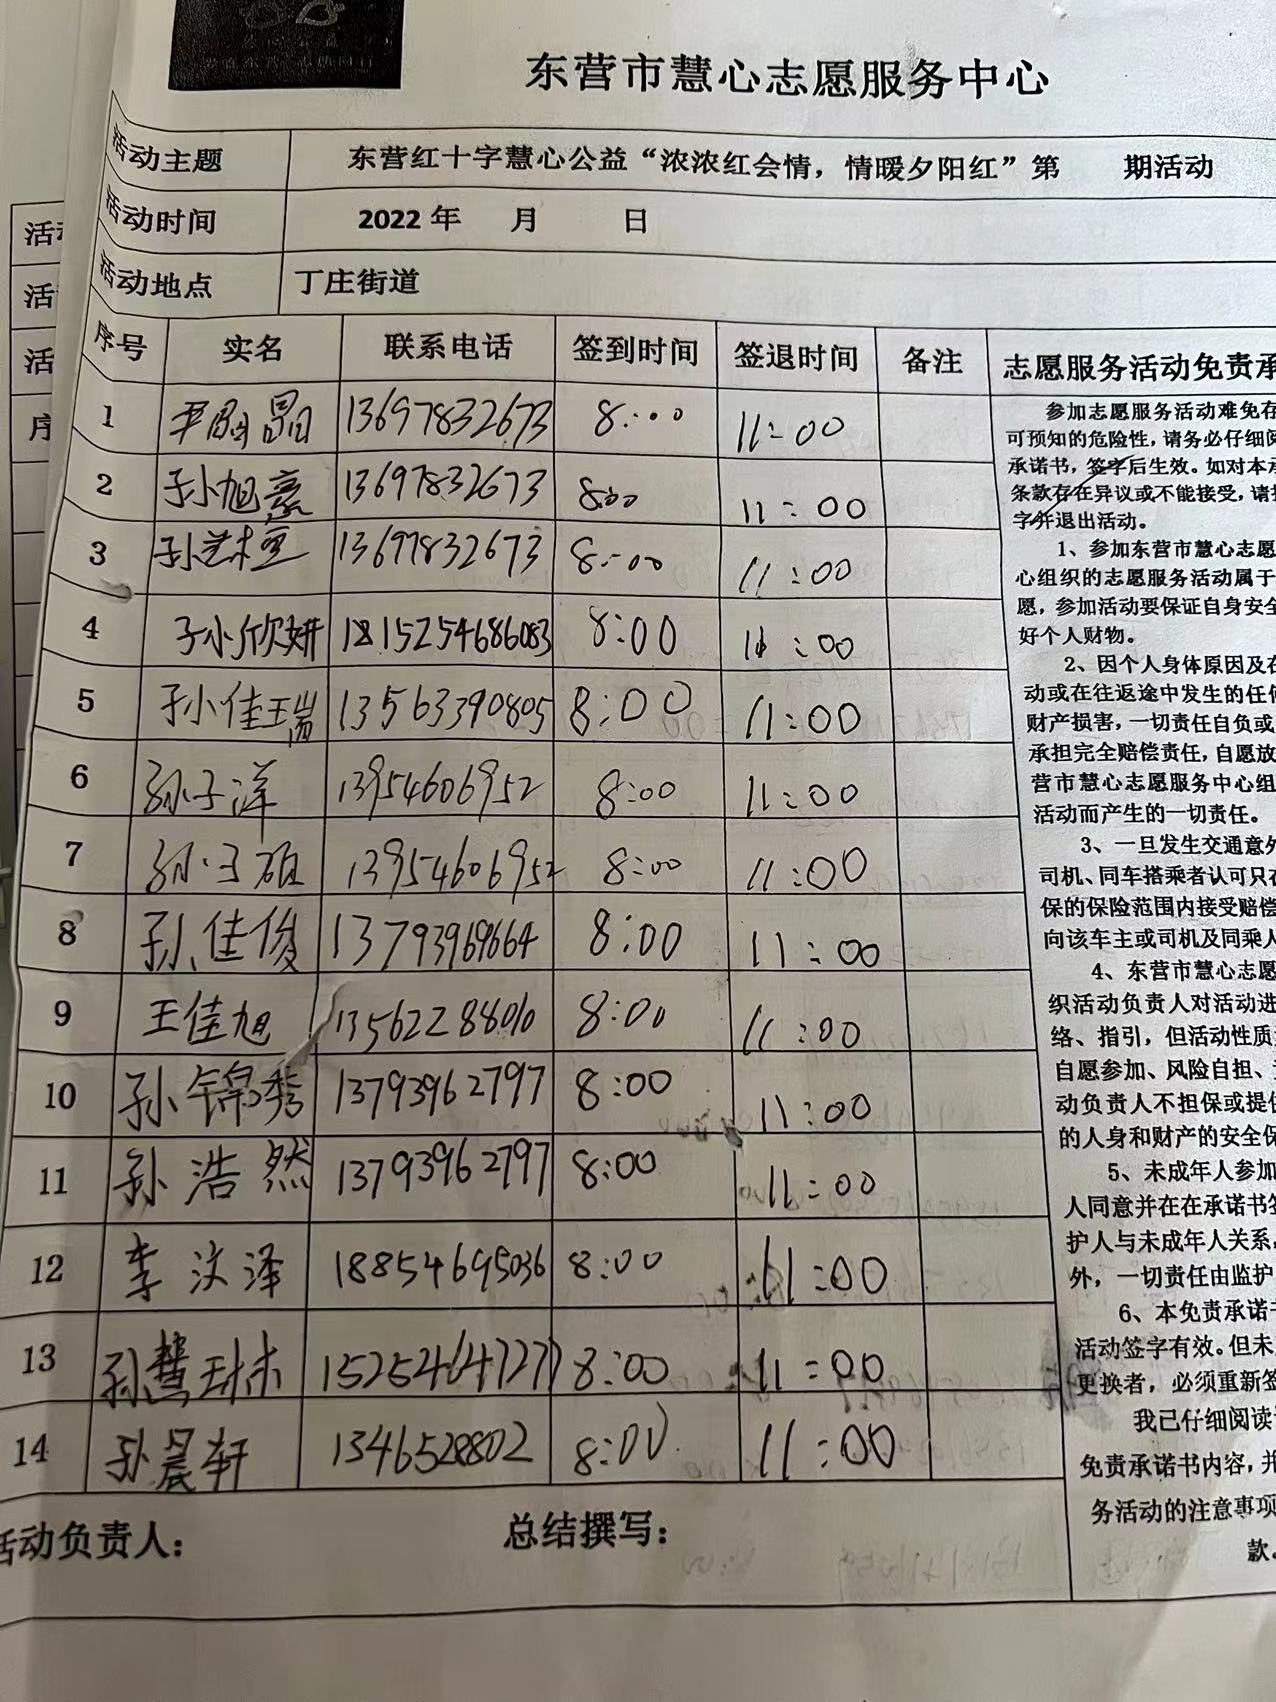 东营市慧心志愿服务中心
活动主题 东营红十字慧心公益“浓浓红会情，情暖夕阳红”第 期活动
活动时间 2022 年 月 日
活动地点 丁庄街道
序号 实名 联系电话 签到时间 签退时间 备注 志愿服务活动免责承
1 13697832673 8:00 11:00
2 孙旭 13697832673 8:00 11:00
3 孙艺 13697832673 8:00 11:00
4 孙欣妍 15254686083 8:00 11:00
5 孙佳瑞 13563390805 8:00 11:00
6 孙子洋 13954606952 8:00 11:00
7 孙子硕 13954606952 8:00 11:00
8 孙佳俊 13793969664 8:00 11:00
9 王佳旭 8:00 11:00
10 孙锦秀 13793962797 8:00 11:00
11 孙浩然 13793962797 8:00 11:00
12 李汶泽 18854695036 8:00 11:00
13 孙慧琳 8:00 11:00
14 孙晨轩 1346528802 8:00 11:00
活动负责人： 总结撰写：
参加志愿服务活动难免存
可预知的危险性，请务必仔细阅
承诺书，签字后生效。如对本承
条款存在异议或不能接受，请
字并退出活动。
1、参加东营市慧心志愿
心组织的志愿服务活动属于
愿，参加活动要保证自身安全
好个人财物。
2、因个人身体原因及在
动或在往返途中发生的任何
财产损害，一切责任自负或
承担完全赔偿责任，自愿放
营市慧心志愿服务中心组
活动而产生的一切责任。
3、一旦发生交通意外
司机、同车搭乘者认可只在
保的保险范围内接受赔偿
向该车主或司机及同乘人
4、东营市慧心志愿
织活动负责人对活动进
络、指引，但活动性质
自愿参加、风险自担、
动负责人不担保或提供
的人身和财产的安全保
5、未成年人参加
人同意并在在承诺书签
护人与未成年人关系，
外，一切责任由监护
6、本免责承诺书
活动签字有效。但未
更换者，必须重新签
我已仔细阅读
免责承诺书内容，并
务活动的注意事项
款。